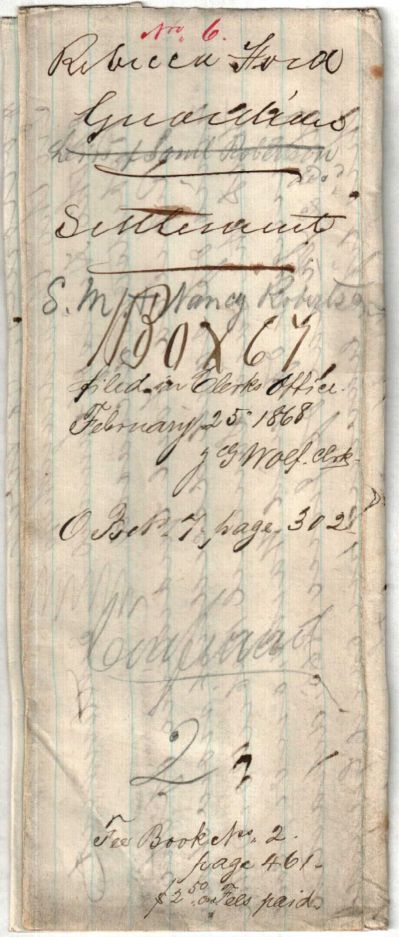 No. 6.
Rebecca Ford
Guardian
heirs of Saml Robertson
Settlement
S. M. & Nancy Robertson
BOX 67
filed in Clerks office.
February 25 1868
J G Wolf. Clerk.
O Bk No. 7. page 302
Confirmed
2
Fee Book No. 2.
page 461.
$2 50/00 Fees paid.